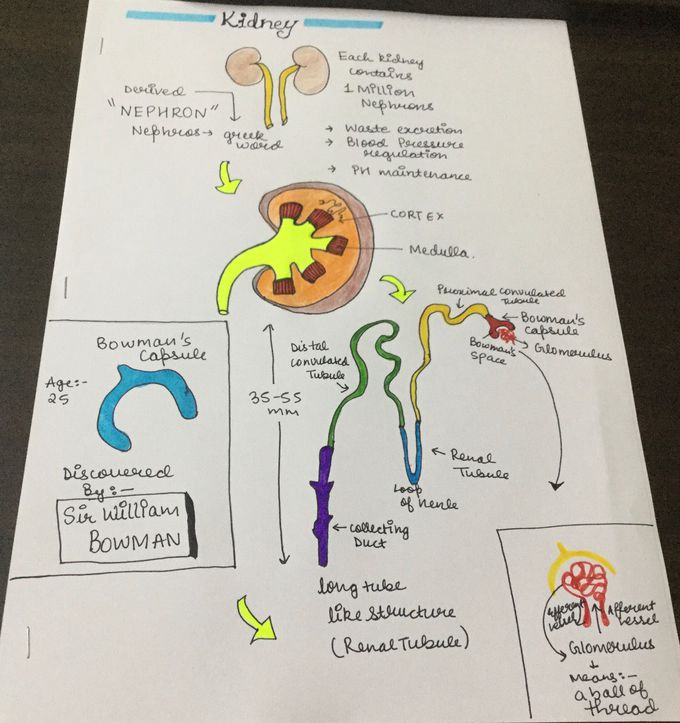 Kidney
Each kidney
contains
1 Million
Nephrons
Derived
"NEPHRON"
Nephros → greek
word
→ Waste excretion
→ Blood Pressure
regulation
→ PH maintenance
CORTEX
Medulla.
Proximal convulated
Tubule
Bowman's
capsule
Bowman's
Space
Glomerulus
Distal
convulated
Tubule
35-55
mm
Renal
Tubule
Loop
of henle
collecting
Duct
long tube
like structure
(Renal Tubule)
Bowman's
Capsule
Age:-
25
Discovered
By:-
Sir William
BOWMAN
Efferent
vessel
Afferent
vessel
Glomerulus
Means:-
a ball of
thread